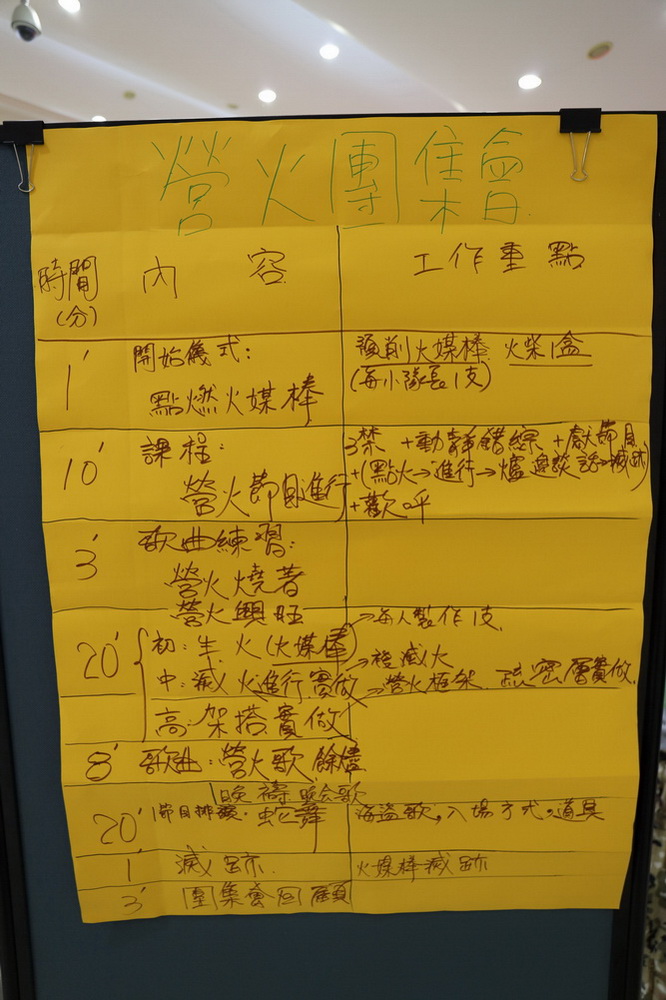 營火團集會
時間
(分)
內 容
工作重點
1'
開始儀式:
點燃火媒棒
預削火媒棒 火柴1盒
(每小隊長1支)
10'
課程:
營火節目進行
3禁 +動靜錯綜 +獻節目
+(點火→進行→爐邊談話→滅跡)
+歡呼
3'
歌曲練習:
營火燒著
營火興旺
20'
初:生火(火媒棒)
→每人製作1支
中:滅火進行實做
→滅火
→營火框架 疏密層實做
高:架搭實做
8'
歌曲:營火歌 餘燼
晚禱 晚會歌
20'
節目排演:蛇舞
海盜歌,入場方式,道具
1'
滅跡
火媒棒滅跡
3'
團集會回顧